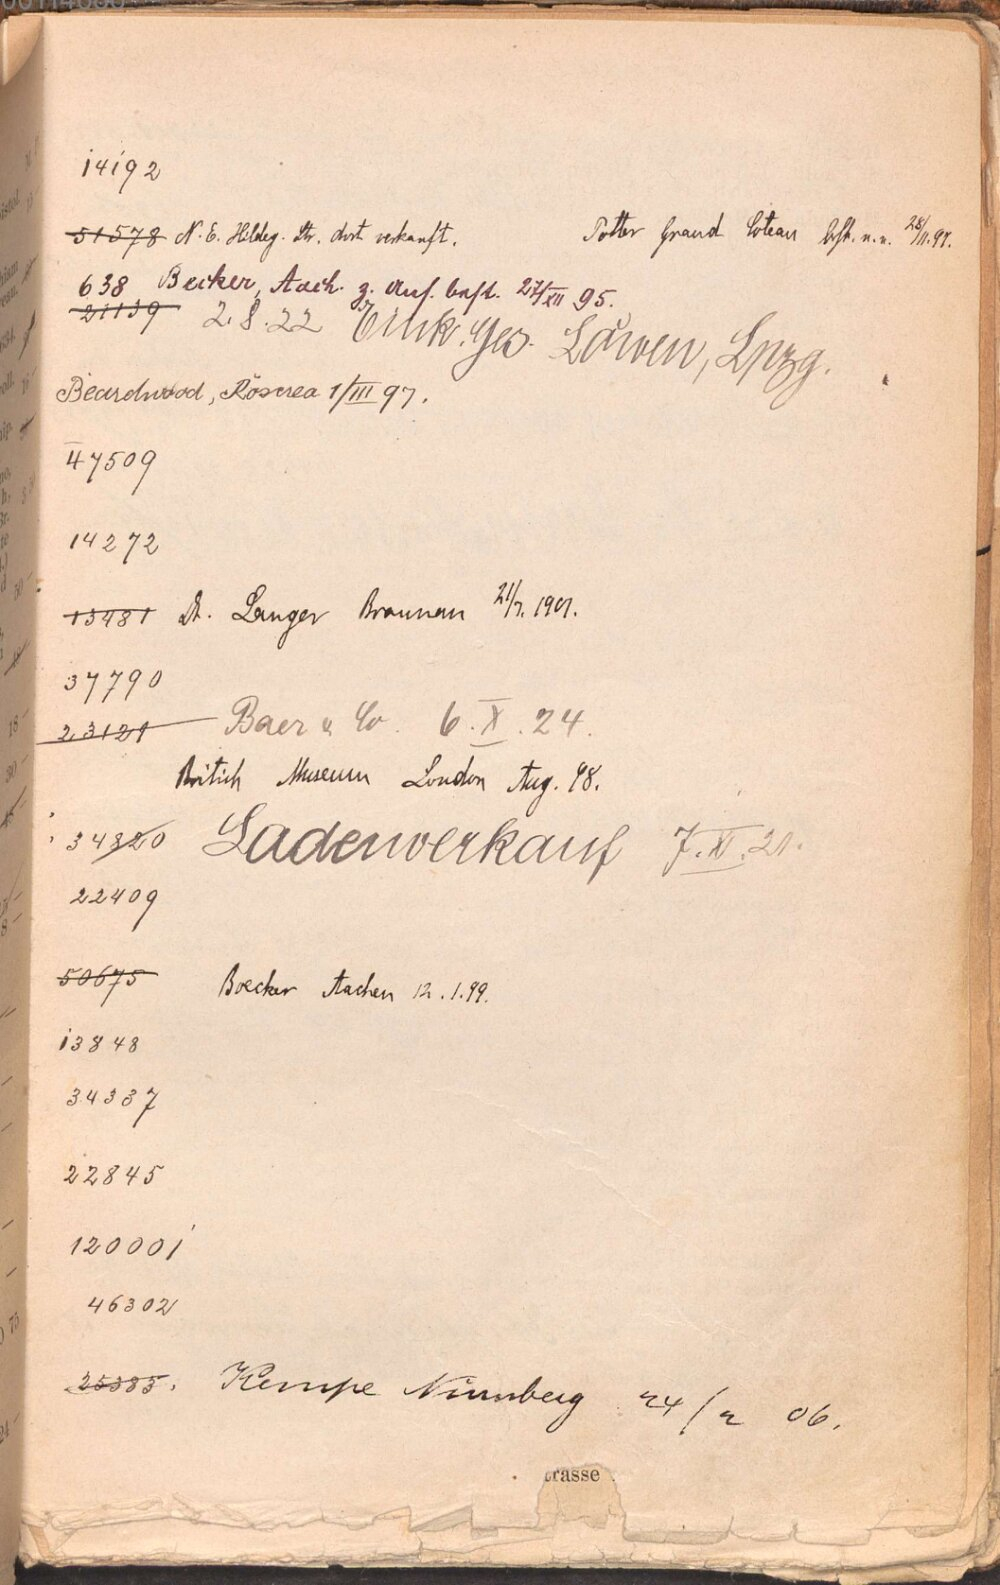 14192
51578 N. E. Hildeg. Str. dort verkauft. Potter Grand Coteau best. n.n. 28/11.97.
638 Becker, Aach. z. Auf. best. 27/XII 95.
21139 2.8.22 Eink. Ges. Löwen, Lpzg.
Beardwood, Roscrea 1/III 97.
47509
14272
13481 Dr. Langer Braunau 21/7. 1901.
37790
23121 Baer & Co. 6.X.24.
Britich Museum London Aug. 98.
34320 Ladenverkauf 7.XI.21.
22409
50675 Boecker Aachen 12.1.99.
13848
34337
22845
120001
46302
25385. Kempe Nürnberg 24/2 06.
trasse